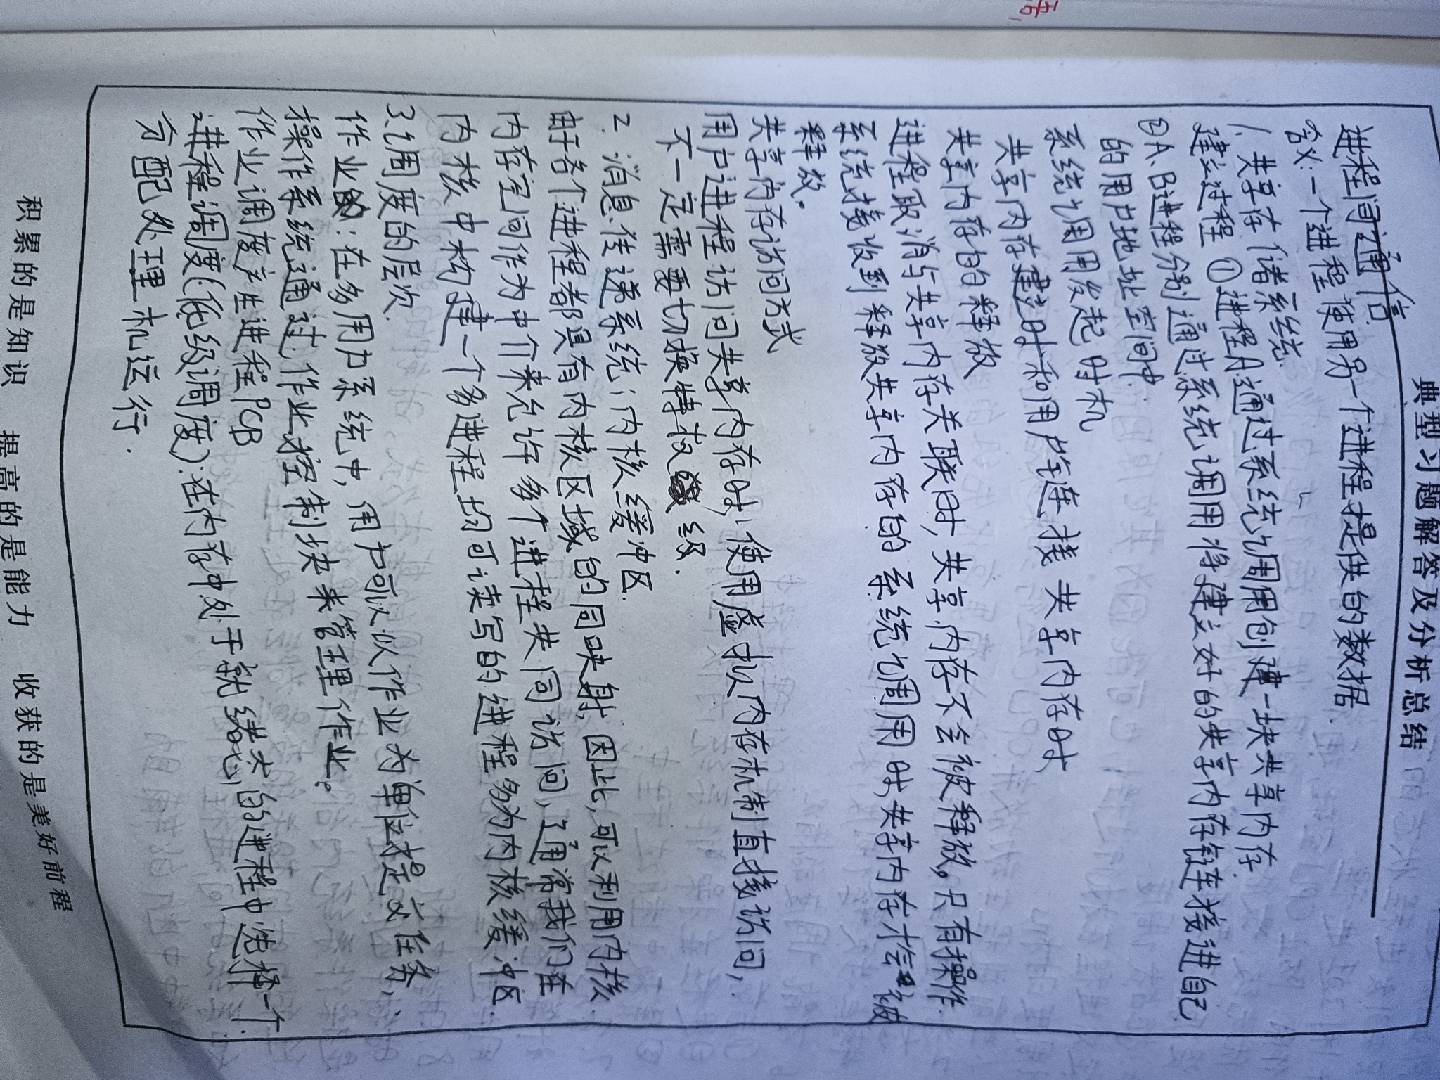 典型习题解答及分析总结
进程间通信
含义:一个进程使用另一个进程提供的数据.
1.共享存储系统.
建立过程 ①进程A通过系统调用创建一块共享内存.
②A、B进程分别通过系统调用将建立好的共享内存链接进自己
的用户地址空间中.
系统调用发起时机
共享内存建立时和用户链接共享内存时、
共享内存的释放
进程取消与共享内存关联时,共享内存不会被释放。只有操作
系统接收到释放共享内存的系统调用时,共享内存才会被
释放。
共享内存访问方式
用户进程访问共享内存时,使用虚拟内存机制直接访问,
不一定需要切换特权级.
2.消息传递系统;内核缓冲区.
由于各个进程都具有内核区域的同映射,因此,可以利用内核
内存空间作为中介来允许多个进程共同访问,通常我们在
内核中构建一个多进程均可读写的进程多为内核缓冲区.
3.调度的层次.
作业:在多用户系统中,用户可以以作业为单位提交任务,
操作系统通过作业控制块来管理作业。
作业调度产生进程PCB
进程调度(低级调度):在内存中处于就绪态的进程中选择一个
分配处理机运行.
积累的是知识 提高的是能力 收获的是美好前程